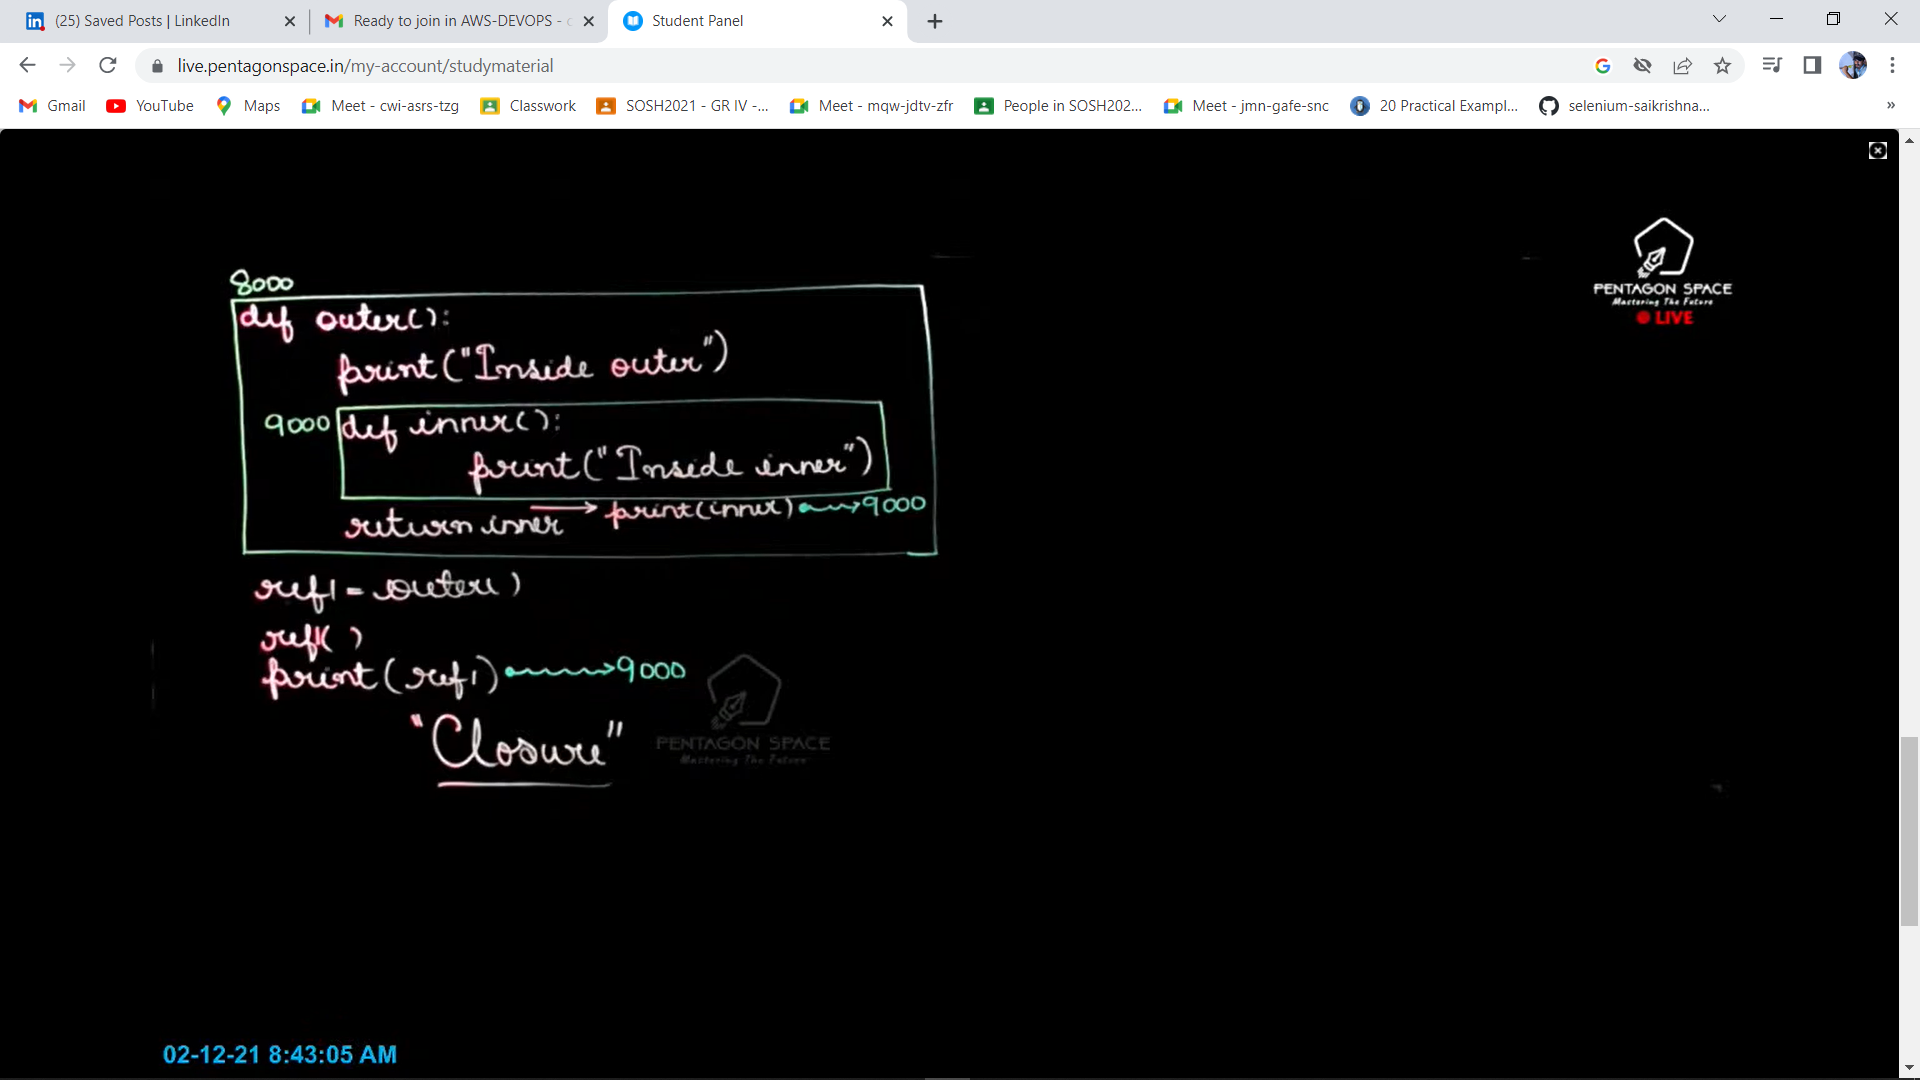 (25) Saved Posts | LinkedIn
Ready to join in AWS-DEVOPS - c
Student Panel
live.pentagonspace.in/my-account/studymaterial
Gmail
YouTube
Maps
Meet - cwi-asrs-tzg
Classwork
SOSH2021 - GR IV -...
Meet - mqw-jdtv-zfr
People in SOSH202...
Meet - jmn-gafe-snc
20 Practical Exampl...
selenium-saikrishna...
»
PENTAGON SPACE
Mastering The Future
LIVE
8000
def outer():
print("Inside outer")
9000 def inner():
print("Inside inner")
return inner → print(inner) → 9000
ref1 = outer()
ref1( )
print(ref1) → 9000
"Closure"
PENTAGON SPACE
Mastering The Future
02-12-21 8:43:05 AM